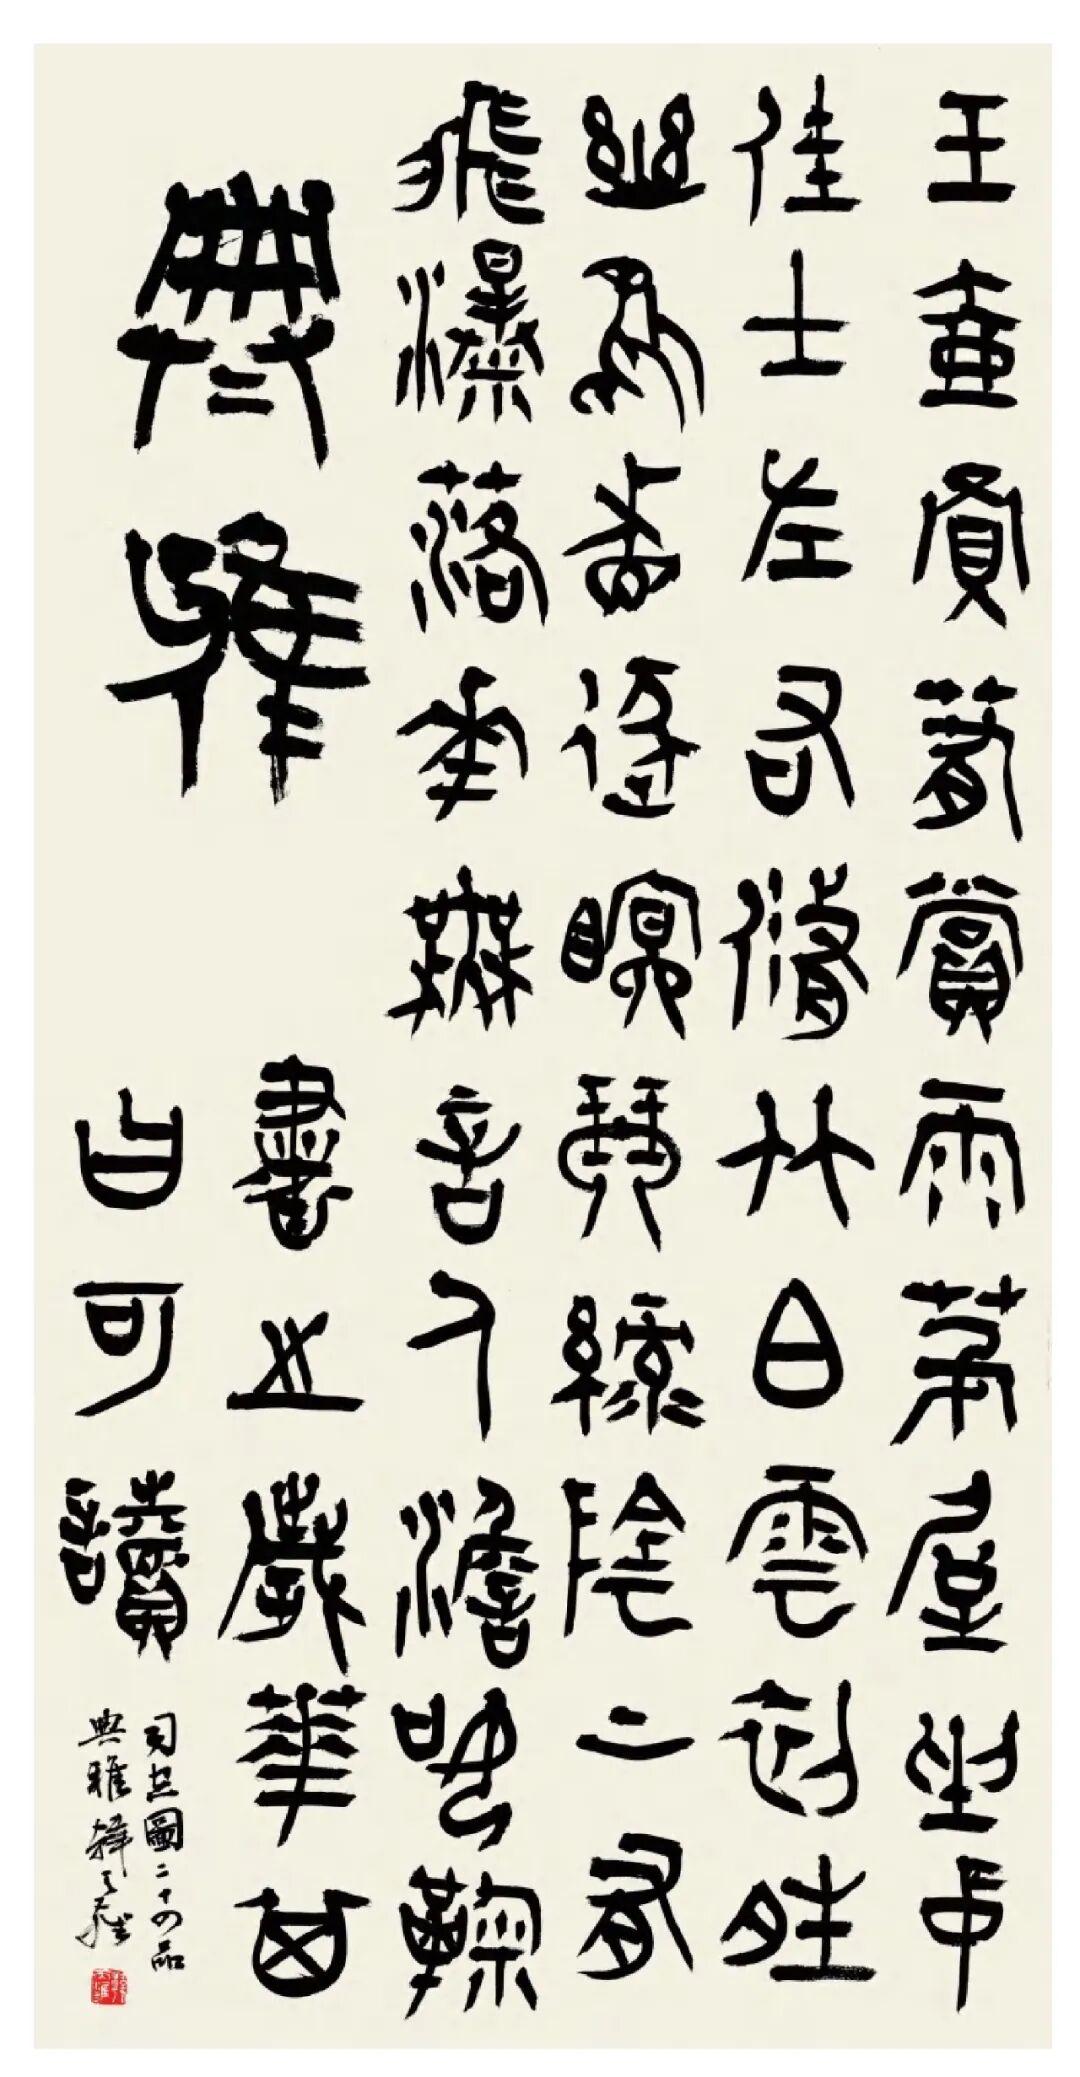 王壺買萅賞雨茅屋坐中
佳士左右脩竹白雲初晴
幽鳥相逐瞑琴綠陰二有
飛瀑落華無言人澹如鞠
書之歲華其
曰可讀
典雅
司空圖二十四品
典雅韓天雍